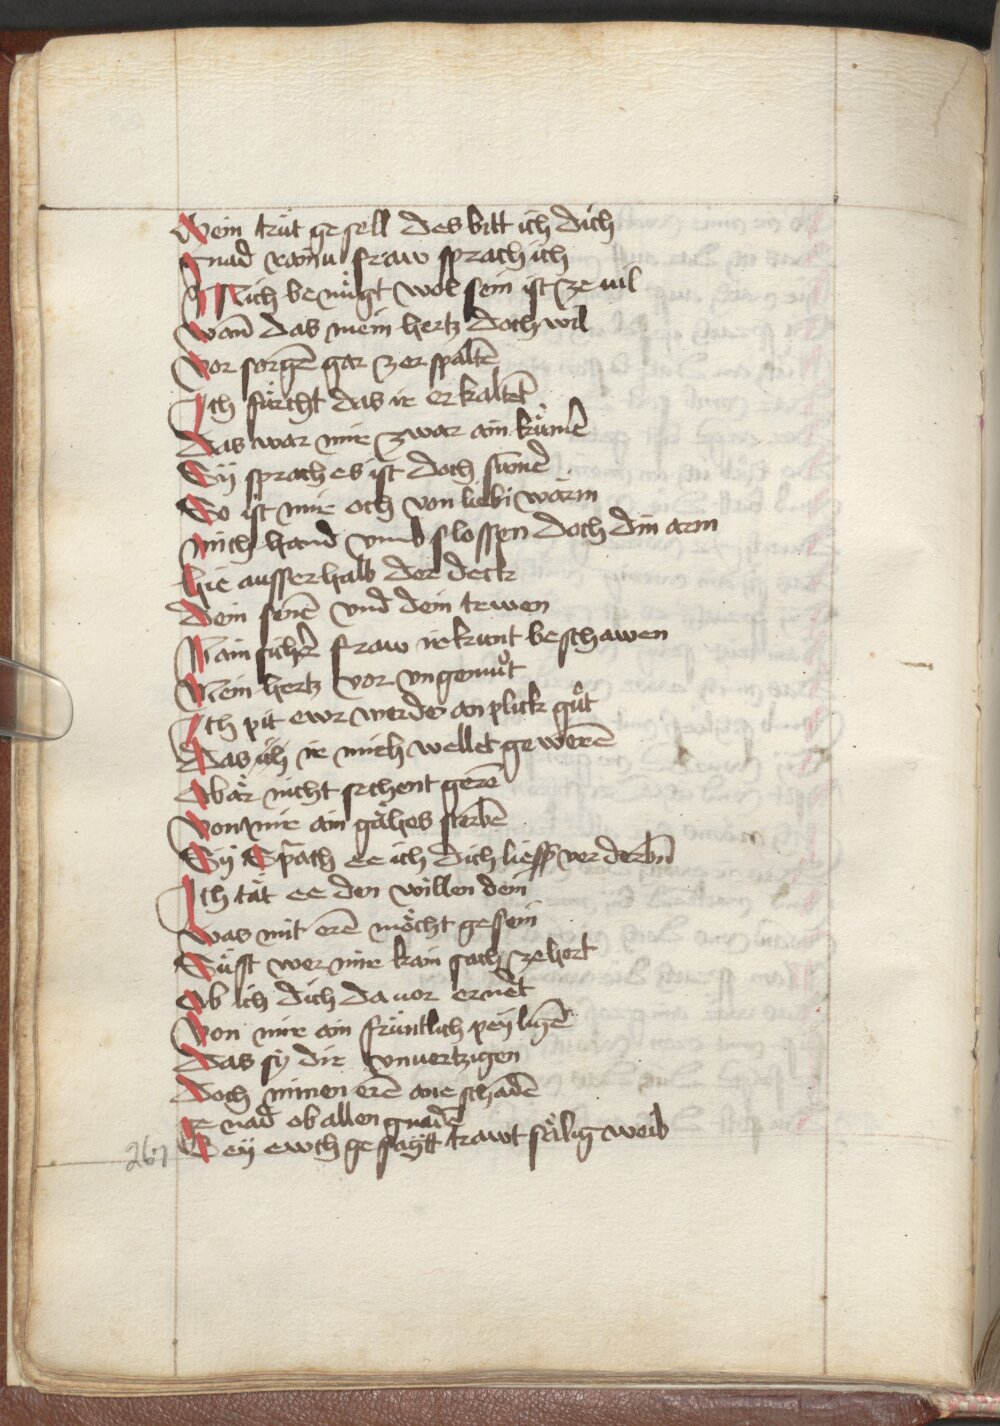 Mein trút gesell des bitt ich dich
Gnad rainu fraw sprach ich
Mich benu̍gt wol sein ist ze uil
Wan̄ das mein hertz doch wil
Vor sorgē gar zer spaltē
Ich fúrcht das ir erkaltēt
Das war mir zwar ain kúmēr
Sÿ sprach es ist doch sūmer
So ist mir och von liebi wárm
mich hand vmb slossen doch din arm
hie ausserhalb der deck
Dein sinē vnd dein trwen
Nain sichēr fraw ir kunt beschawen
Mein hertz vor vngemuͦt
Ich pit ewr werdes anplick guͦt
Das ich ir mich wellet gewerē
Ob ár nicht sechent gerē
Von mir ain gáhes sterbē
Sÿ Sprach ee ich dich liess verderbn̄
Ich tát ee den willen dein
Was mit erē mócht gesein
Súst wer mir kain sach ze hert
Ob ich dich da uor ernert
Von mir ain frúntlich peÿ ligē
Das sÿ dir vnuertzigen
Doch minen erē ane schadē
Genad ob allen gnadē
Seÿ ewch gesaÿtt trawt sálig weib
267